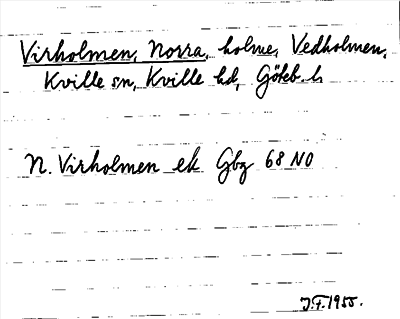 Virholmen, Norra, holme, Vedholmen,
Kville sn, Kville hd, Göteb. l.
N. Virholmen ek Gbg 68 NO
J.F. 1955.